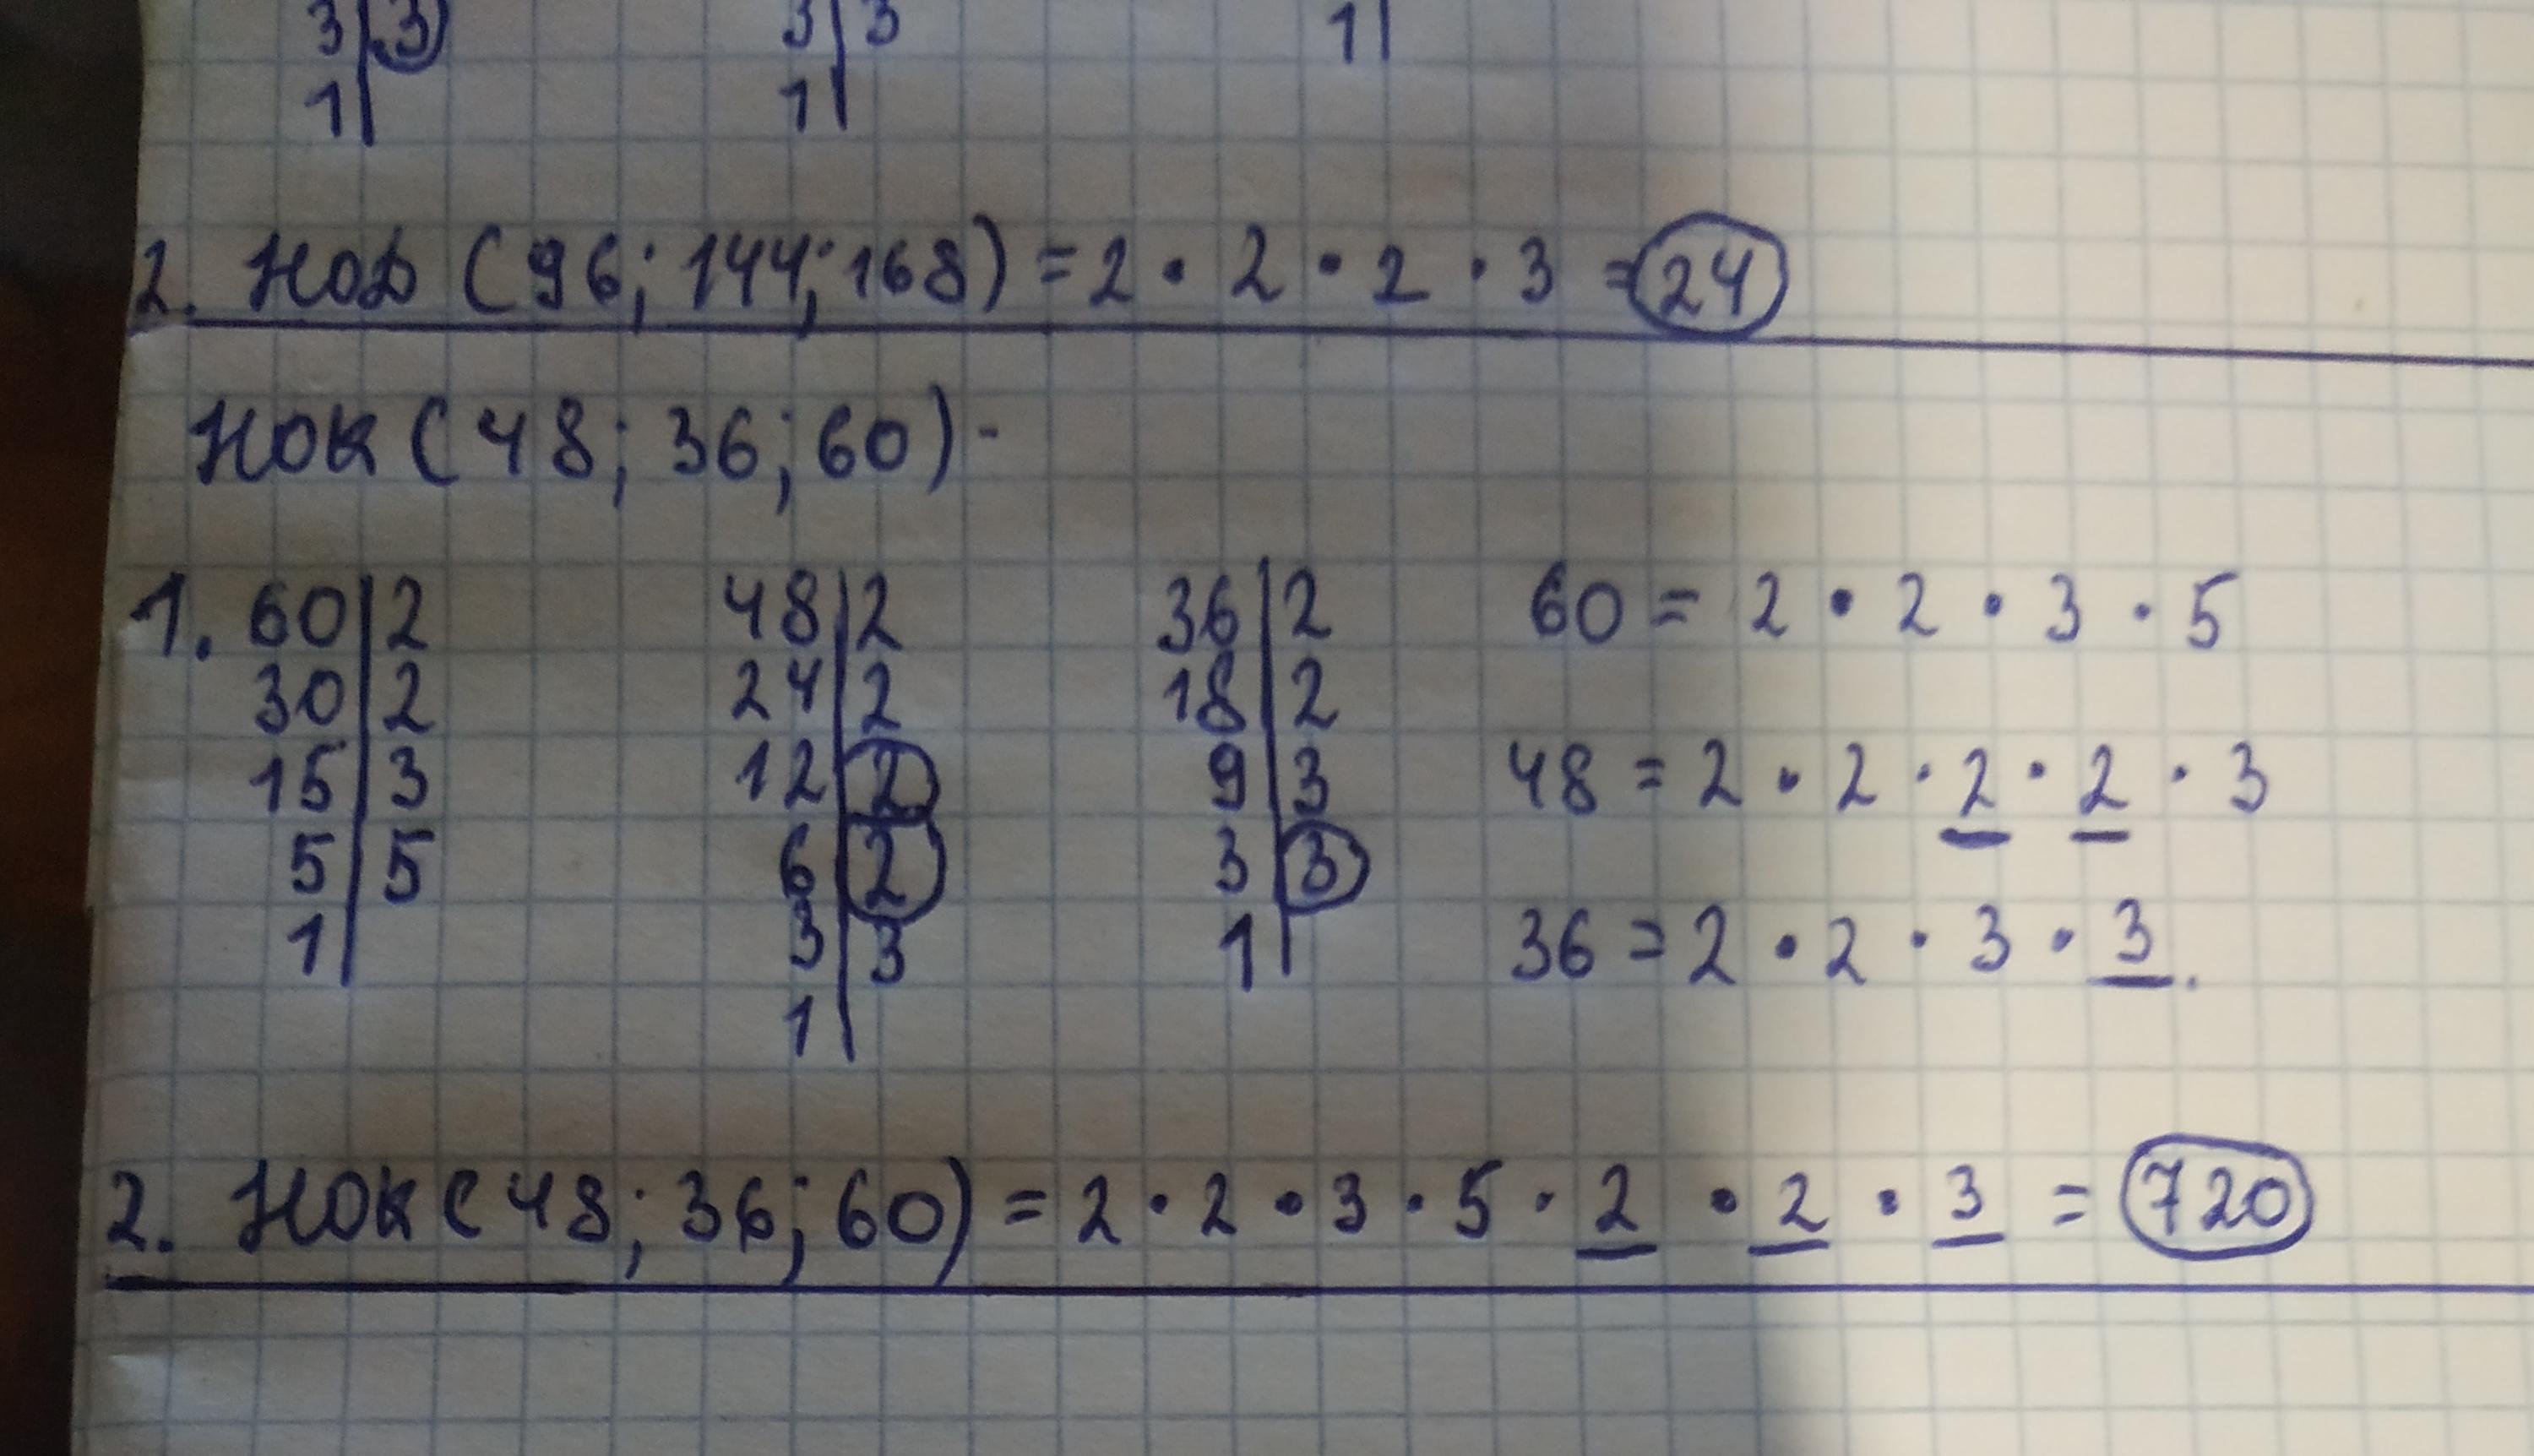 3 | 3 3 | 3 1 |
1 | 1 |
2. НОД (96; 144; 168) = 2 · 2 · 2 · 3 = 24
НОК (48; 36; 60) -
1. 60 | 2 48 | 2 36 | 2 60 = 2 · 2 · 3 · 5
30 | 2 24 | 2 18 | 2
15 | 3 12 | 2 9 | 3 48 = 2 · 2 · 2 · 2 · 3
5 | 5 6 | 2 3 | 3
1 | 3 | 3 1 | 36 = 2 · 2 · 3 · 3.
1 |
2. НОК (48; 36; 60) = 2 · 2 · 3 · 5 · 2 · 2 · 3 = 720